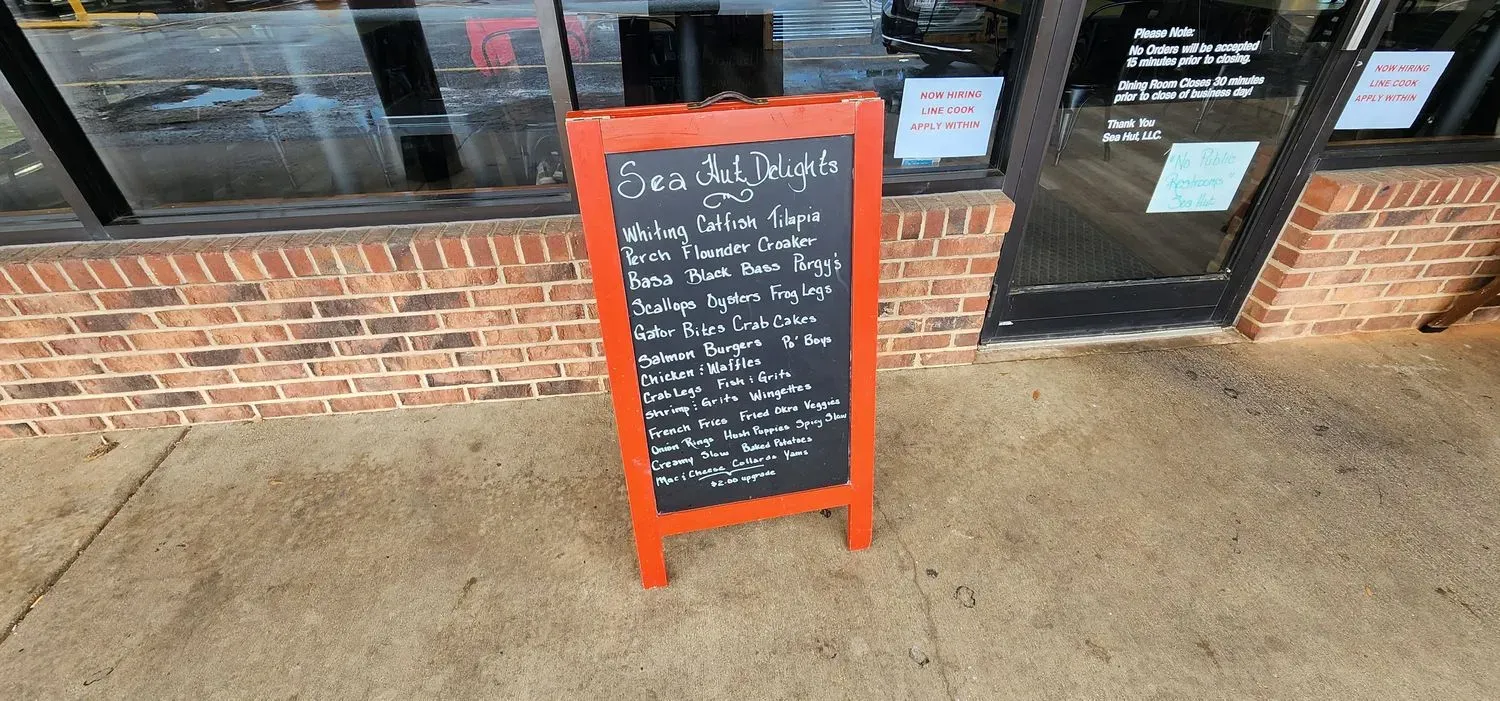 Sea Hut Delights
Whiting Catfish Tilapia
Perch Flounder Croaker
Basa Black Bass Porgy's
Scallops Oysters Frog Legs
Gator Bites Crab Cakes
Salmon Burgers Po' Boys
Chicken & Waffles
Crab Legs Fish & Grits
Shrimp & Grits Wingettes
French Fries Fried Okra Veggies
Onion Rings Hush Puppies Spicy Slaw
Creamy Slaw Baked Potatoes
Mac & Cheese Collards Yams
$2.00 upgrade
NOW HIRING
LINE COOK
APPLY WITHIN
Please Note:
No Orders will be accepted
15 minutes prior to closing.
Dining Room Closes 30 minutes
prior to close of business day!
Thank You
Sea Hut, LLC.
"No Public
Restrooms"
Sea Hut
NOW HIRING
LINE COOK
APPLY WITHIN